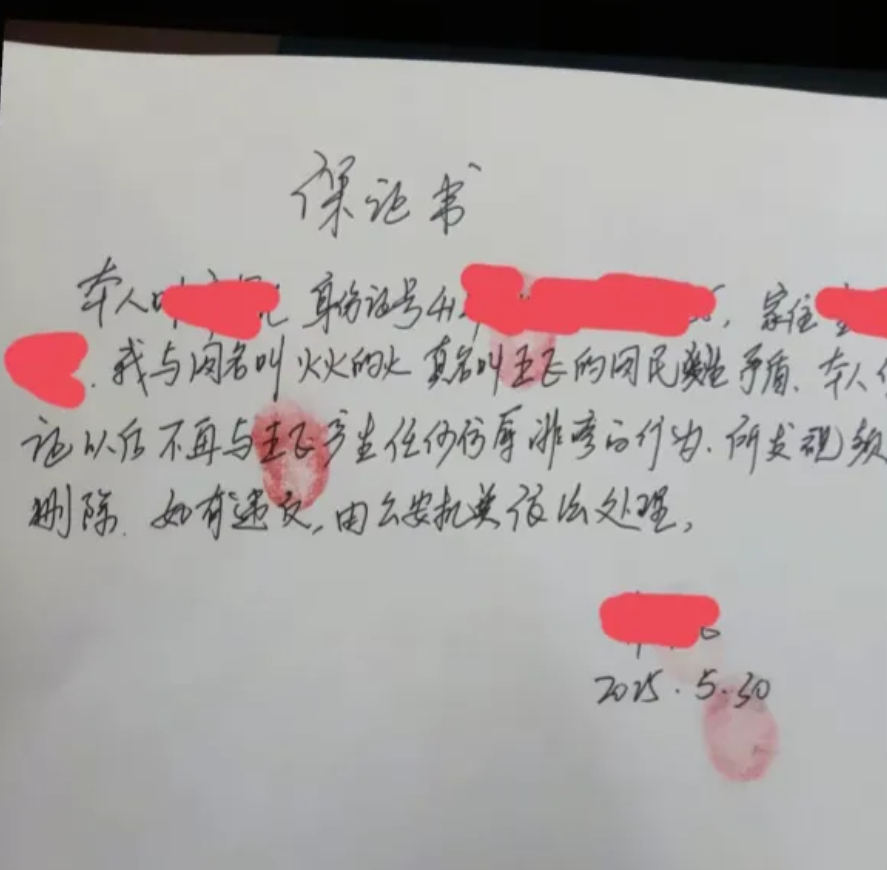 保证书
本人叫 身份证号41 , 家住
. 我与网名叫火火的火 真名叫王飞的网民发生矛盾、本人
证以后不再与王飞产生任何侮辱诽谤的行为. 所发视频
删除. 如有违反, 由公安机关依法处理,
2025.5.30